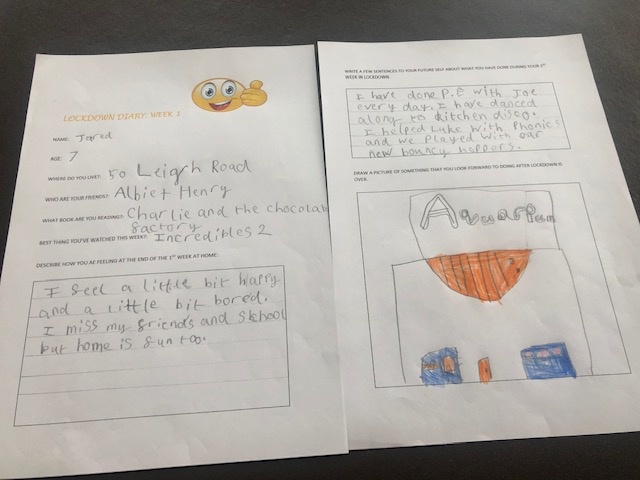 LOCKDOWN DIARY: WEEK 1
NAME: Jared
AGE: 7
WHERE DO YOU LIVE? 50 Leigh Road
WHO ARE YOUR FRIENDS? Albie + Henry
WHAT BOOK ARE YOU READING? Charlie and the chocolate
factory
BEST THING YOU'VE WATCHED THIS WEEK? Incredibles 2
DESCRIBE HOW YOU AE FEELING AT THE END OF THE 1ST WEEK AT HOME:
I feel a little bit happy
and a little bit bored.
I miss my friends and School
but home is fun too.
WRITE A FEW SENTENCES TO YOUR FUTURE SELF ABOUT WHAT YOU HAVE DONE DURING YOUR 1ST
WEEK IN LOCKDOWN.
I have done P.E with Joe
every day. I have danced
along to kitchen disco.
I helped Luke with Phonics
and we Played with our
new bouncy hoppers.
DRAW A PICTURE OF SOMETHING THAT YOU LOOK FORWARD TO DOING AFTER LOCKDOWN IS
OVER.
Aquarium